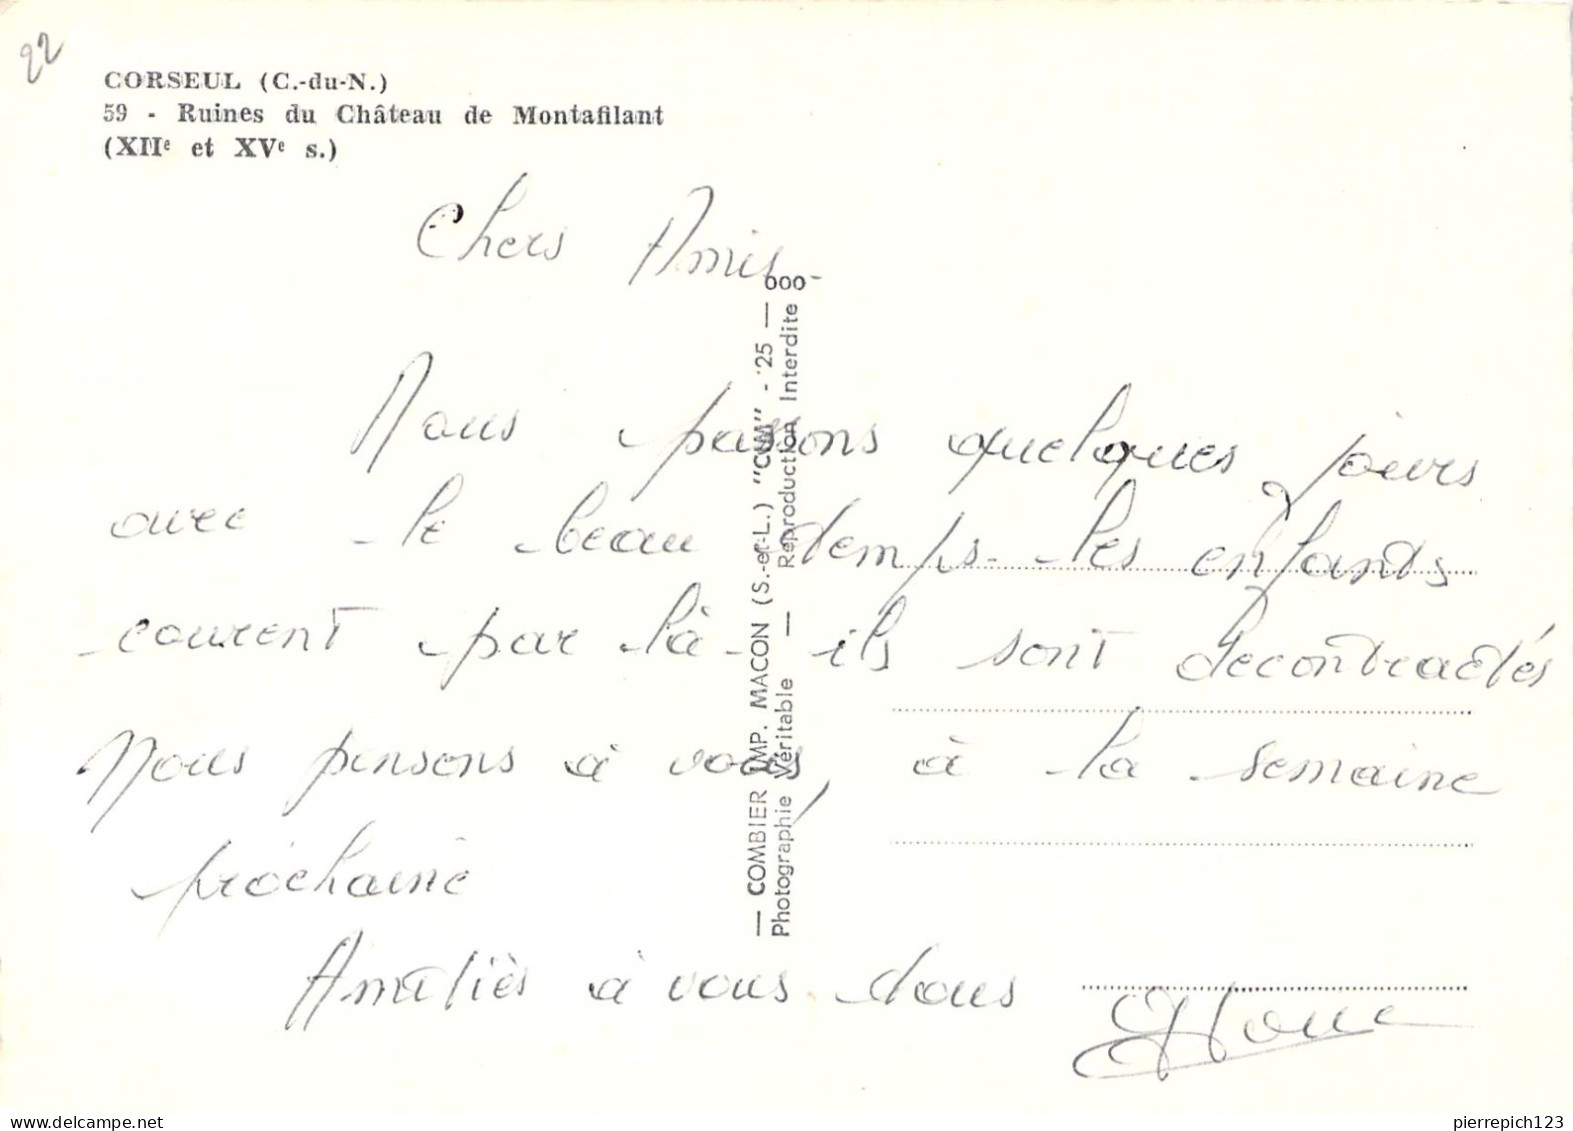 22
CORSEUL (C.-du-N.)
59 - Ruines du Château de Montafilant
(XIIe et XVe s.)
Chers Amis -
Nous passons quelques jours
avec le beau temps - les enfants
courent par là - ils sont decontractés
Nous pensons à vous, à la semaine
prochaine
Amitiès à vous tous
— COMBIER IMP. MACON (S.-et-L.) "CIM" - 25 — 000
Photographie Véritable — Reproduction Interdite
pierrepich123